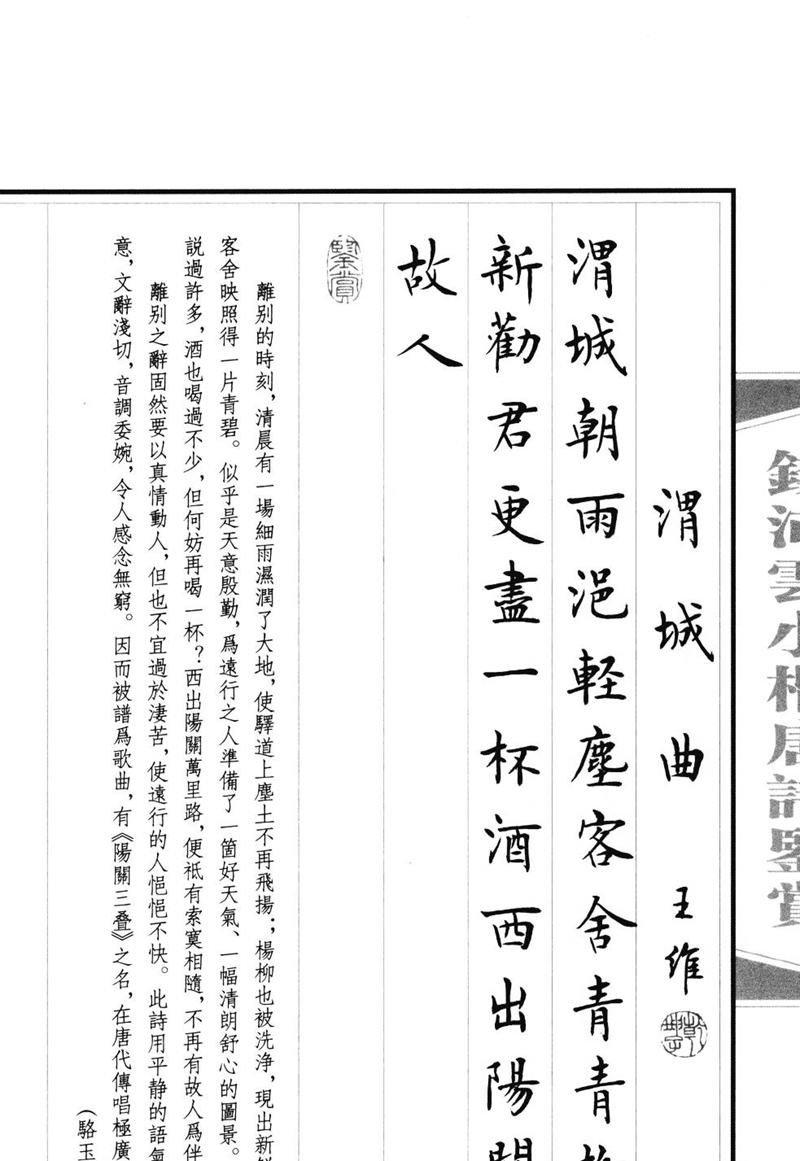 渭城曲
王維
渭城朝雨浥輕塵客舍青青
新勸君更盡一杯酒西出陽
故人
鑒賞
離别的時刻，清晨有一場細雨濕潤了大地，使驛道上塵土不再飛揚；楊柳也被洗浄，現出新
客舍映照得一片青碧。似乎是天意殷勤，爲遠行之人準備了一箇好天氣、一幅清朗舒心的圖景。
説過許多，酒也喝過不少，但何妨再喝一杯？西出陽關萬里路，便祗有索寞相隨，不再有故人爲伴
離别之辭固然要以真情動人，但也不宜過於淒苦，使遠行的人悒悒不快。此詩用平静的語氣
意，文辭淺切，音調委婉，令人感念無窮。因而被譜爲歌曲，有《陽關三叠》之名，在唐代傳唱極廣
（駱玉
雲小楷唐詩鑒賞